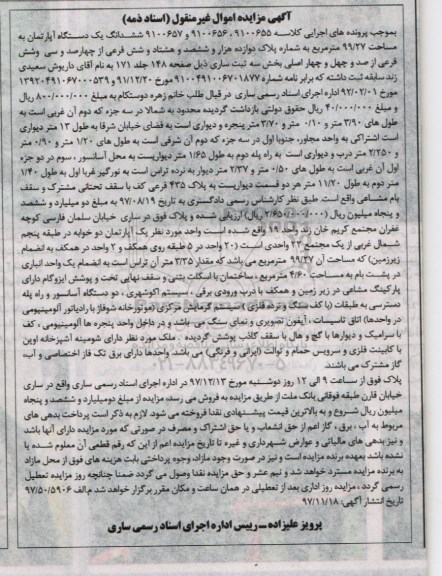 آگهی مزایده اموال غیرمنقول (اسناد ذمه)
بموجب پرونده های اجرایی کلاسه ۹۱۰۰۶۵۵ ، ۹۱۰۰۶۵۶ و ۹۱۰۰۶۵۷ ششدانگ یک دستگاه آپارتمان به
مساحت ۹۹/۲۷ مترمربع به شماره پلاک دوازده هزار و ششصد و هشتاد و شش فرعی از چهارصد و سی وشش
فرعی از صد و چهل و چهار اصلی بخش سه ثبت ساری ذیل صفحه ۱۴۸ جلد ۱۷۱ به نام آقای داریوش سعیدی
زند سابقه ثبت داشته که برابر نامه شماره ۹۱۰۰۴۹۱۰۰۶۷۰۱۸۷۷ مورخ ۹۱/۱۲/۲۰ و ۱۳۹۲۰۴۹۱۰۶۷۰۰۰۵۳۹
مورخ ۹۲/۰۲/۰۱ اداره اجرای اسناد رسمی ساری در قبال طلب خانم زهره دوستکام به مبلغ ۸۰۰/۰۰۰/۰۰۰ ریال
و مبلغ ۴۰/۰۰۰/۰۰۰ ریال حقوق دولتی بازداشت گردیده محدود به شمالا در سه جزء که دوم آن غربی است به
طول های ۳/۹۰ متر و ۰/۱۰ متر و ۳/۷۰ متر پنجره و دیواری است به فضای خیابان شرقا به طول ۱۳ متر دیواری
است اشتراکی به واحد مجاور، جنوبا اول در سه جزء که دوم آن شرقی است به طول های ۱/۲۰ متر و ۰/۹۰ متر
و ۲/۲۵۰ متر درب و دیواری است به راه پله دوم به طول ۱/۶۵ متر دیواریست به محل آسانسور ، سوم در دو جزء
اول آن غربی است به طول های ۰/۵۰ متر و ۲/۳۷ متر دیوار به نرده تراس است به نورگیر غربا اول به طول ۱/۴۰
متر دوم به طول ۱۱/۲۰ متر هر دو قسمت دیواریست به پلاک ۴۳۵ فرعی کف با سقف تحتانی مشترک و سقف
بام مشاعی واقع است. طبق نظر کارشناس رسمی دادگستری به تاریخ ۹۷/۰۸/۱۹ به مبلغ دو میلیارد و ششصد
و پنجاه میلیون ریال (۲/۶۵۰/۰۰۰/۰۰۰ ریال) ارزیابی شده و پلاک فوق در ساری خیابان سلمان فارسی کوچه
غفران مجتمع کریم خان زند واحد ۱۹ واقع شده است واحد مورد نظر یک آپارتمان دو خوابه در طبقه پنجم
شمال غربی از یک مجتمع ۲۲ واحدی است (۲۰ واحد در ۵ طبقه روی همکف و ۲ واحد در همکف به انضمام
زیرزمین) که مساحت آن ۹۹/۲۷ مترمربع می باشد که مقدار ۳/۳۵ متر آن تراس است به انضمام یک واحد انباری
در پشت بام به مساحت ۴/۶۰ مترمربع ، ساختمان با اسکلت بتنی و سقف نهایی تخت و پوشش ایزوگام دارای
پارکینگ مشاعی در زیر زمین و همکف با درب ورودی برقی ، سیستم اکوشهری ، دو دستگاه آسانسور و راه پله
دسترسی به طبقات (با کف سنگ و نرده فلزی) سیستم گرمایش مرکزی (موتورخانه شوفاژ با رادیاتور آلومینیومی
در واحدها) اتاق تاسیسات ، آیفون تصویری و نمای سنگ می باشد و در داخل واحد پنجره ها آلومینیومی ، کف
با سرامیک و دیوارها با گچ و هال با سقف کاذب پوشش گردیده ، ملک مورد نظر دارای شومینه آشپزخانه اوپن
با کابینت فلزی و سرویس حمام و توالت (ایرانی و فرنگی) می باشد. واحدها دارای برق تک فاز اختصاصی و آب،
گاز مشترک می باشند
پلاک فوق از ساعت ۹ الی ۱۲ روز دوشنبه مورخ ۹۷/۱۲/۱۳ در اداره اجرای اسناد رسمی ساری واقع در ساری
خیابان قارن طبقه فوقانی بانک ملت از طریق مزایده به فروش می رسد، مزایده از مبلغ دومیلیارد و ششصد و پنجاه
میلیون ریال شروع و به بالاترین قیمت پیشنهادی نقدا فروخته می شود. لازم به ذکر است پرداخت بدهی های
مربوط به آب ، برق ، گاز اعم از حق انشعاب و یا حق اشتراک و مصرف در صورتی که مورد مزایده دارای آنها باشد
و نیز بدهی های مالیاتی و عوارض شهرداری و غیره تا تاریخ مزایده اعم از این که رقم قطعی آن معلوم شده یا
نشده باشد بعهده برنده مزایده است و نیز در صورت وجود مازاد، وجوه پرداختی بابت هزینه های فوق از محل مازاد
به برنده مزایده مسترد خواهد شد و نیم عشر و حق مزایده نقدا وصول می گردد ضمنا چنانچه روز مزایده تعطیل
رسمی گردد ، مزایده روز اداری بعد از تعطیلی در همان ساعت و مکان مقرر برگزار خواهد شد م.الف ۹۷/۵۰/۵۹۰۶
تاریخ انتشار آگهی: ۹۷/۱۱/۱۸
پرویز علیزاده ـ رییس اداره اجرای اسناد رسمی ساری